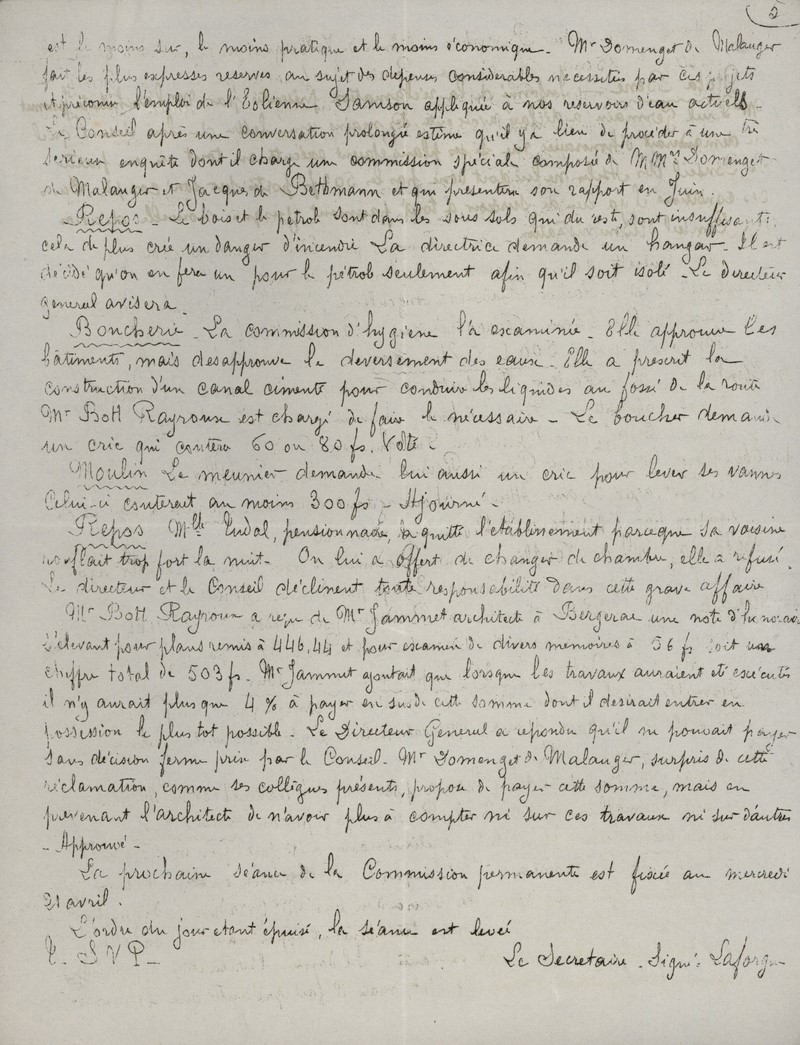 5
est le moins sur, le moins pratique et le moins économique. Mr Domenget de Malauger
fait les plus expresses reserves au sujet des depenses considerables necessitées par ces projets
et préconise l'emploi de l'Eolienne Samson appliquée à nos reservoirs d'eau actuels.
Le Conseil après une conversation prolongée estime qu'il y a lieu de procéder à une très
serieuse enquête dont il charge une commission spéciale composée de M Mrs Domenget
de Malauger et Jacques de Bethmann et qui presentera son rapport en Juin.
Repos - Le bois et le pétrole sont dans les sous sols qui du reste, sont insuffisants,
cela de plus crée un danger d'incendie La directrice demande un hangar. Il est
décidé qu'on en fera un pour le pétrole seulement afin qu'il soit isolé - Le directeur
general avisera.
Boucherie - La commission d'hygiene l'a examinée. Elle approuve les
bâtiments, mais desapprouve le deversement des eaux. Elle a prescrit la
construction d'un canal cimenté pour conduire les liquides au fossé de la route
Mr Bott Rayroux est chargé de faire le nécessaire - Le boucher demande
un cric qui contera 60 ou 80 fs. Voté -
Moulin Le meunier demande lui aussi un cric pour lever ses vannes
Celui-ci conterait au moins 300 fs - Ajourné -
Repos Mlle Tudal, pensionnaire, a quitté l'établissement parceque sa voisine
ronflait trop fort la nuit. On lui a offert de changer de chambre, elle a refusé.
Le directeur et le Conseil déclinent toute responsabilité dans cette grave affaire
Mr Bott Rayroux a reçu de Mr Jammet architecte à Bergerac une note d'honoraires
s'élevant pour plans remis à 446,44 et pour examen de divers memoires à 56 fs soit un
chiffre total de 503 fs. Mr Jammet ajoutait que lorsque les travaux auraient été executés
il n'y aurait plus que 4 % à payer en sus de cette somme dont il desirait entrer en
possession le plus tot possible. Le Directeur General a repondu qu'il ne pouvait payer
sans décision ferme prise par le Conseil. Mr Domenget de Malauger, surpris de cette
réclamation, comme ses collègues présents, propose de payer cette somme, mais en
prevenant l'architecte de n'avoir plus à compter ni sur ces travaux ni sur d'autres
- Approuvé -
La prochaine séance de la Commission permanente est fixée au mercredi
21 avril.
L'ordre du jour etant épuisé, la séance est levée
T. S V P -
Le Secretaire - Signé: Laforgue